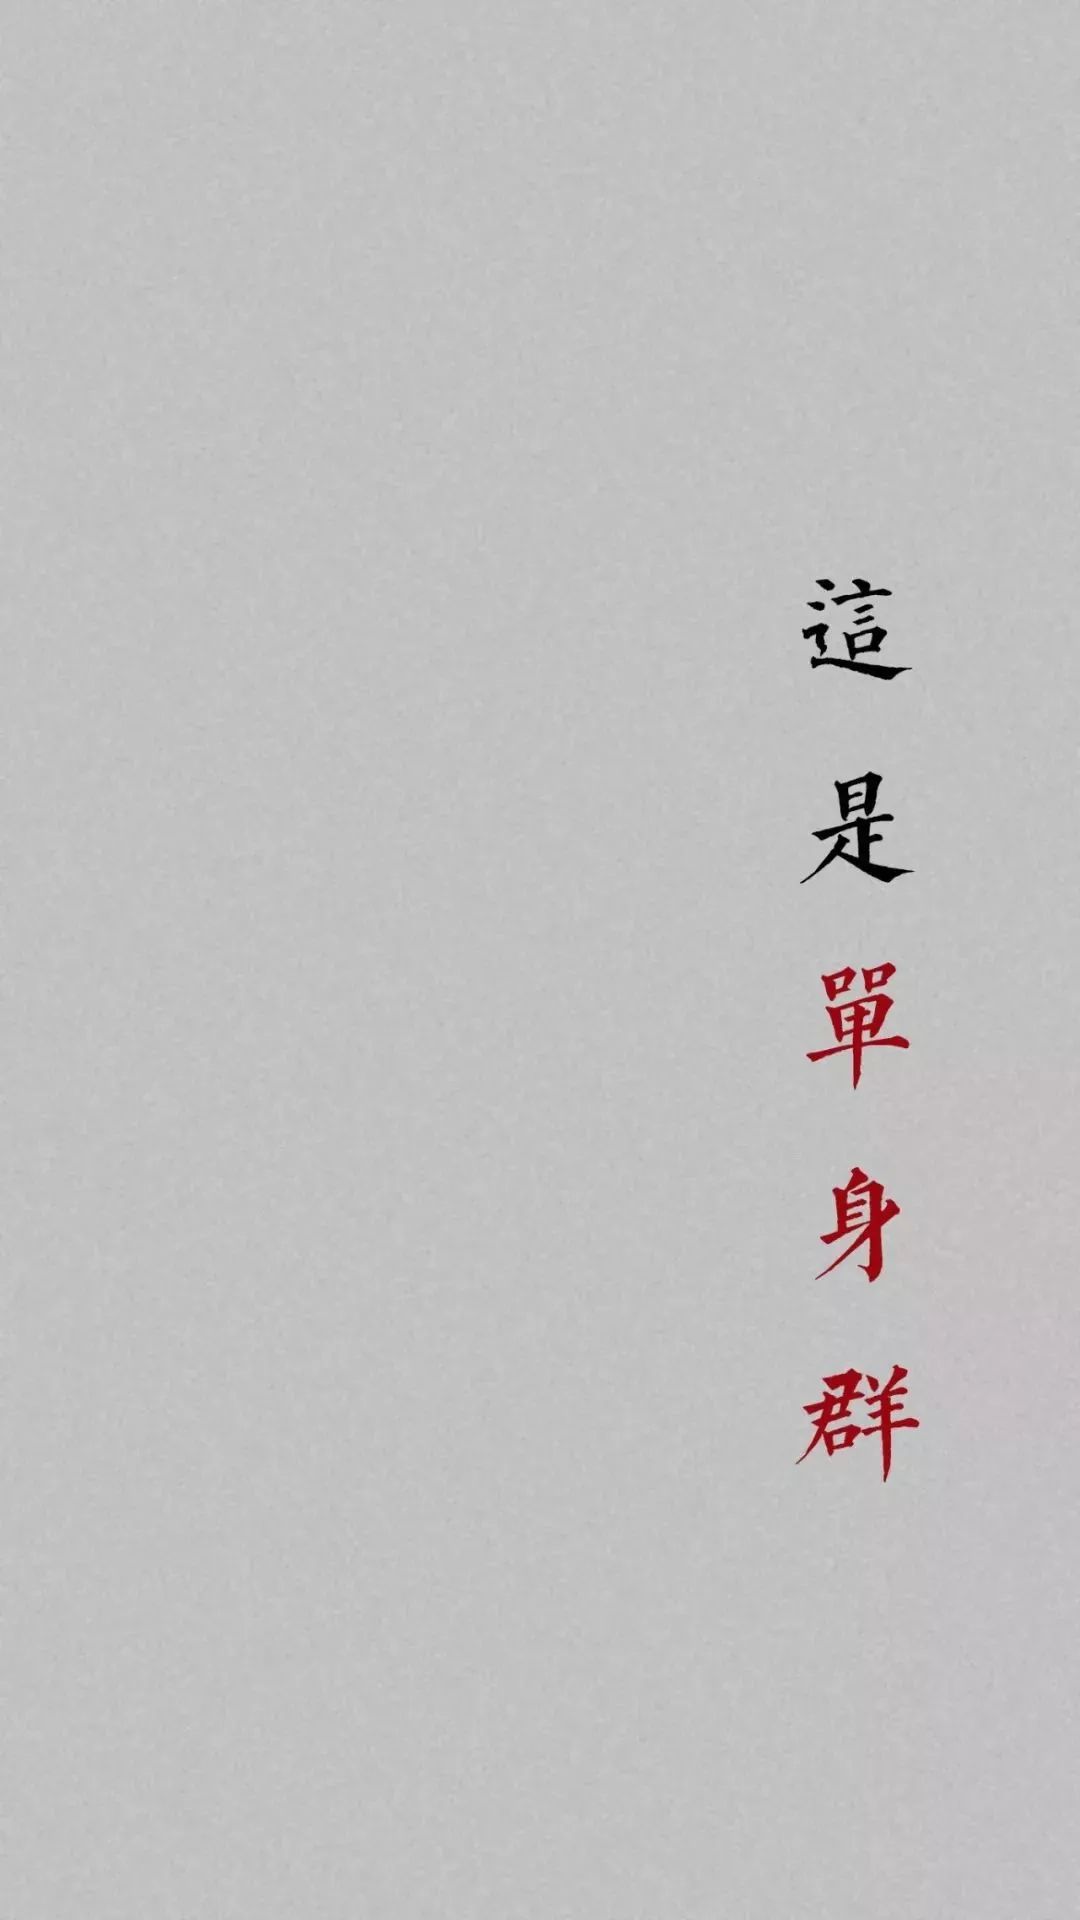 這是單身群